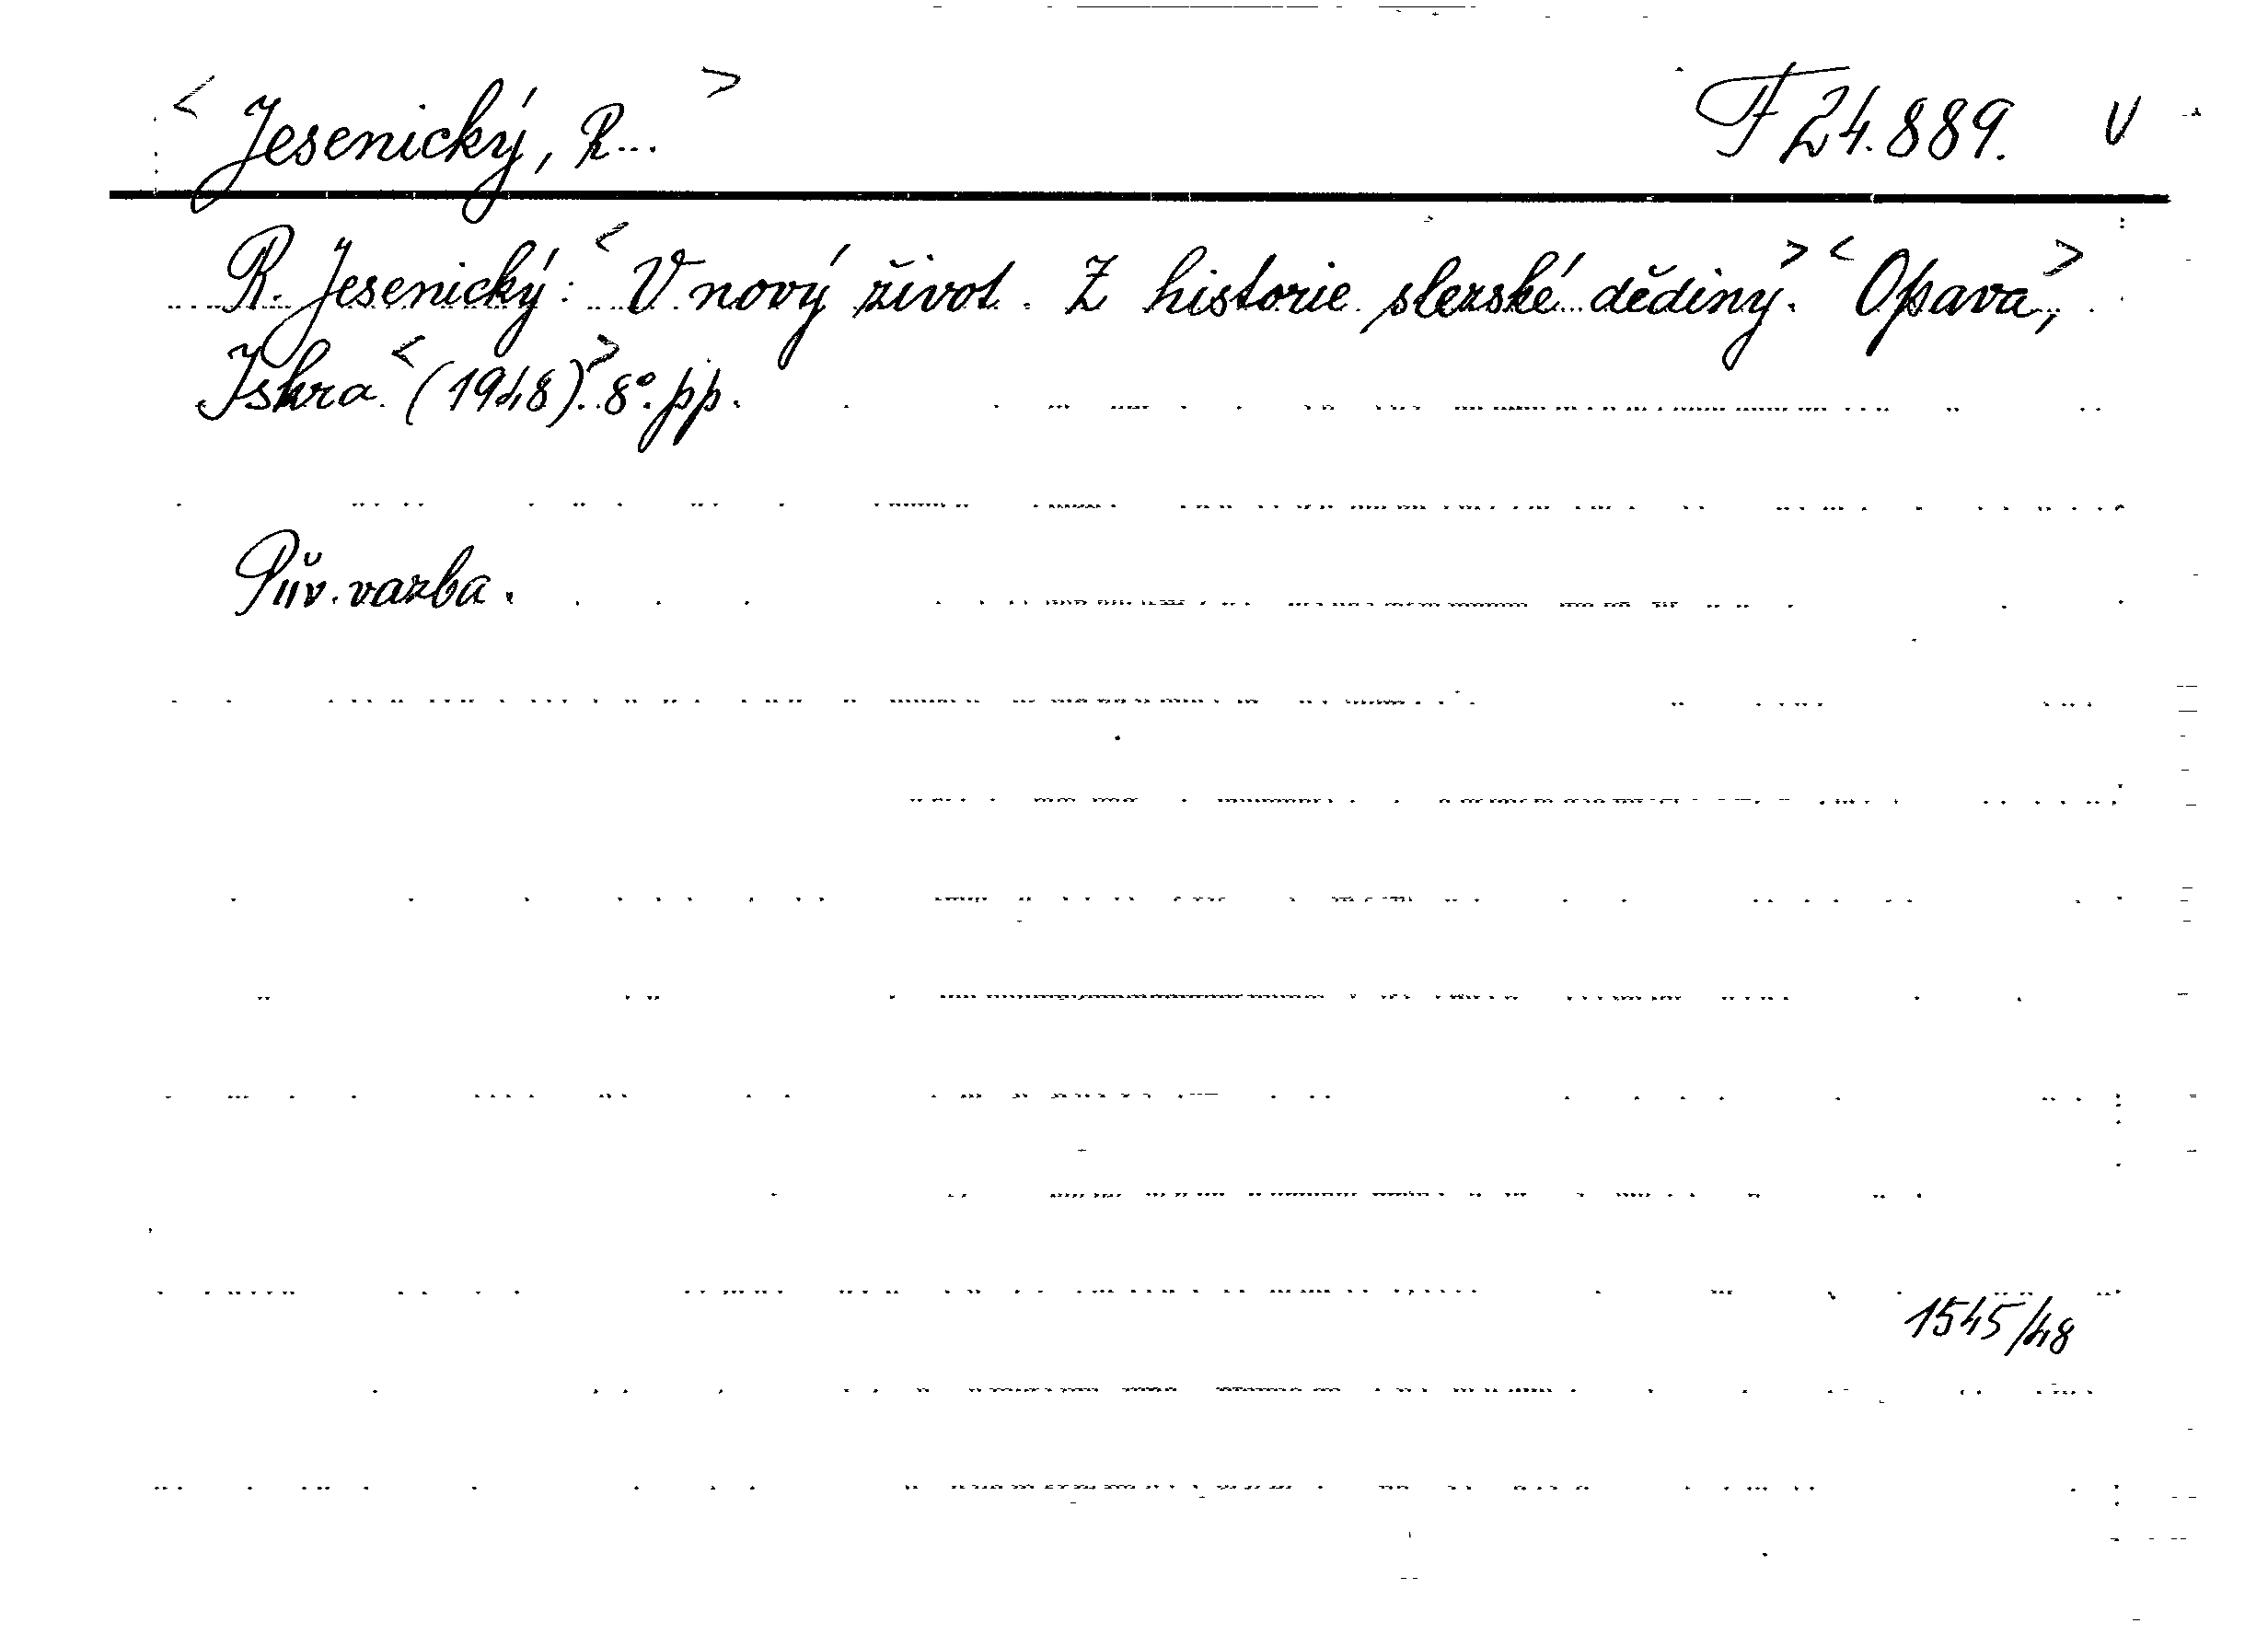 <Jesenický, R...> F 24.889. V
R. Jesenický: <V nový život. Z historie slezské dědiny.> <Opava,>
Iskra <(1948).> 8°. pp.
Pův. vazba.
1545/48